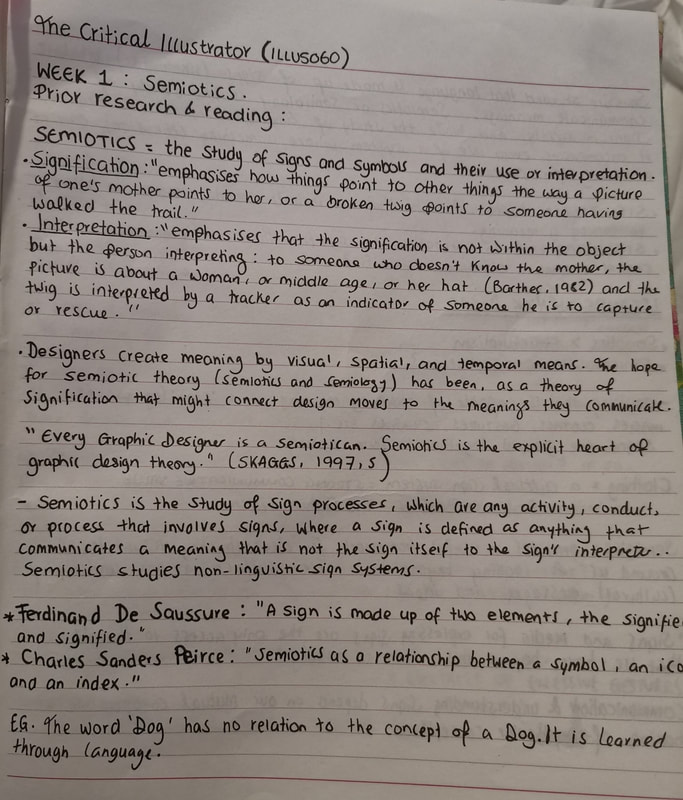 The Critical Illustrator (ILLUS060)
WEEK 1 : Semiotics.
Prior research & reading :
SEMIOTICS = the study of signs and symbols and their use or interpretation.
• Signification : "emphasises how things point to other things the way a picture
of one's mother points to her, or a broken twig points to someone having
walked the trail."
• Interpretation : "emphasises that the signification is not within the object
but the person interpreting : to someone who doesn't know the mother, the
picture is about a woman, or middle age, or her hat (Barthes, 1982) and the
twig is interpreted by a tracker as an indicator of someone he is to capture
or rescue."
• Designers create meaning by visual, spatial, and temporal means. The hope
for semiotic theory (semiotics and semiology) has been, as a theory of
signification that might connect design moves to the meanings they communicate.
"Every Graphic Designer is a semiotican. Semiotics is the explicit heart of
graphic design theory." (SKAGGS, 1997, 5)
- Semiotics is the study of sign processes, which are any activity, conduct,
or process that involves signs, where a sign is defined as anything that
communicates a meaning that is not the sign itself to the sign's interpreter..
Semiotics studies non-linguistic sign systems.
* Ferdinand De Saussure : "A sign is made up of two elements, the signifie
and signified."
* Charles Sanders Peirce : "Semiotics as a relationship between a symbol, an ico
and an index."
EG. The word 'Dog' has no relation to the concept of a Dog. It is learned
through language.